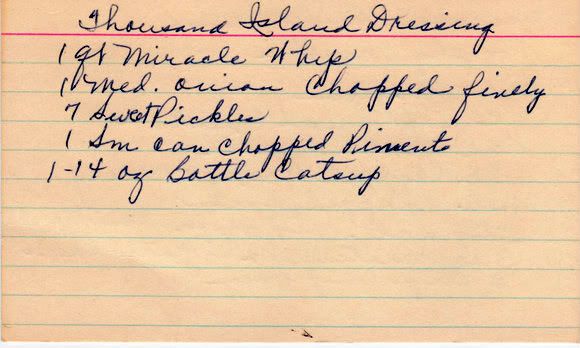 Thousand Island Dressing
1 qt Miracle Whip
1 med. onion chopped finely
7 Sweet Pickles
1 Sm can chopped Pimento
1-14 oz bottle Catsup